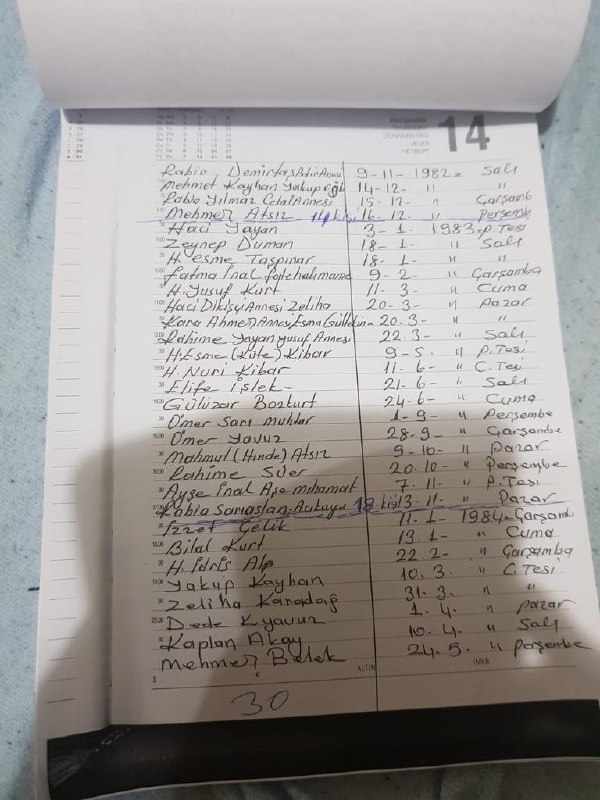 PERŞEMBE
THURSDAY
DONNERSTAG
JEUDI
14
Rabia Demirtaş Bekir Annesi 9-11-1982- Salı
Mehmet Kayhan Yakup oğlu 14-12- " "
Rabia Yılmaz Celal Annesi 15-12- " Çarşamb
Mehmet Atsız 14 kişi 16-12- " Perşemb
Hacı Yayan 3-1-1983-P.Tesi
Zeynep Duman 18-1- " Salı
H. Esme Taşpınar 18-1- " "
Fatma İnal 9-2- " Çarşamba
H. Yusuf Kurt 11-3- " Cuma
Haci Dikişçi Annesi Zeliha 20-3- " Pazar
Kara Ahmet Annesi Esma Gültekin- 20-3- " "
Rahime Yayan Yusuf Annesi 22-3- " Salı
H. Esme (Küte) Kibar 9-5- " P.Tesi
H. Nuri Kibar 11-6- " C.Tesi
Elife İşlek- 21-6- " Salı
Gülüzar Bozkurt 24-6- " Cuma
Ömer Sarı muhtar 1-9- " Perşembe
Ömer Yavuz 28-9- " Çarşambe
Mahmut (Hinde) Atsız 9-10- " Pazar
Rahime Süer 20-10- " Perşembe
Ayşe İnal Aşe mıhamat 7-11- " P.Tesi
Rabia Sarıaslan-Acıkuyu 18 kişi 13-11- " Pazar
İzzet Çelik 11-1-1984-Çarşamb
Bilal Kurt 13-1- " Cuma
H. İdris Alp 22-2- " Çarşamba
Yakup Kayhan 10.3. " C.Tesi
Zeliha Karadağ 31.3. " "
Dede K.yavuz 1.4. " pazar
Kaplan Akay 10.4. " Salı
Mehmet Belek 24.5. " perşembe
ALTIN İMKB
$ €
30